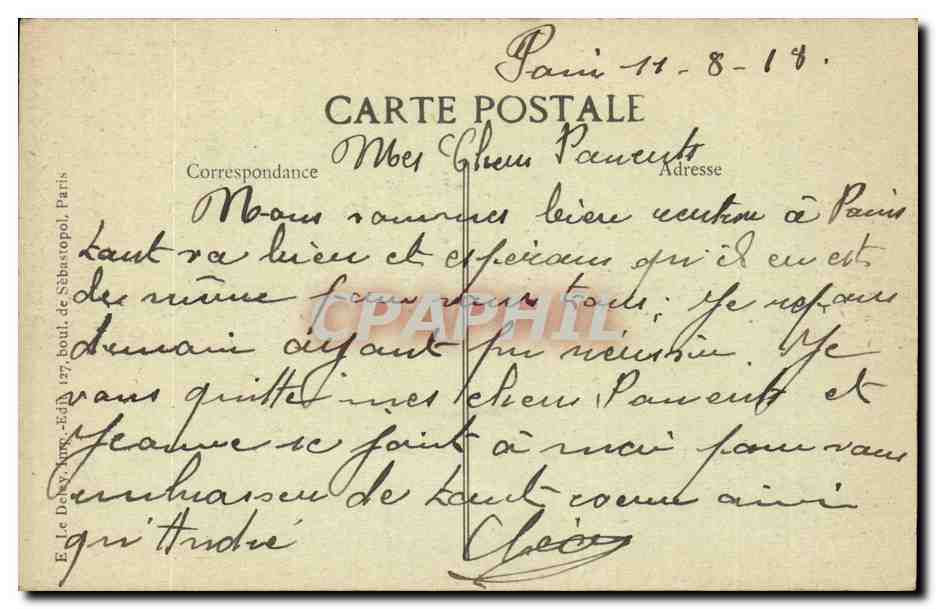 Paris 11-8-18.
CARTE POSTALE
Mes Chers Parents
Correspondance
Adresse
Nous sommes bien rentrés à Paris
tout va bien et espérons qu'il en est
de même pour vous tous; Je repars
demain ayant pu réussir. Je
vous quitte mes chers Parents et
Jeanne se joint à moi pour vous
embrasser de tout coeur ainsi
qu'André
Léon
E. Le Deley, Imp.-Edit., 127, boul. de Sébastopol, Paris
CPAPHIL